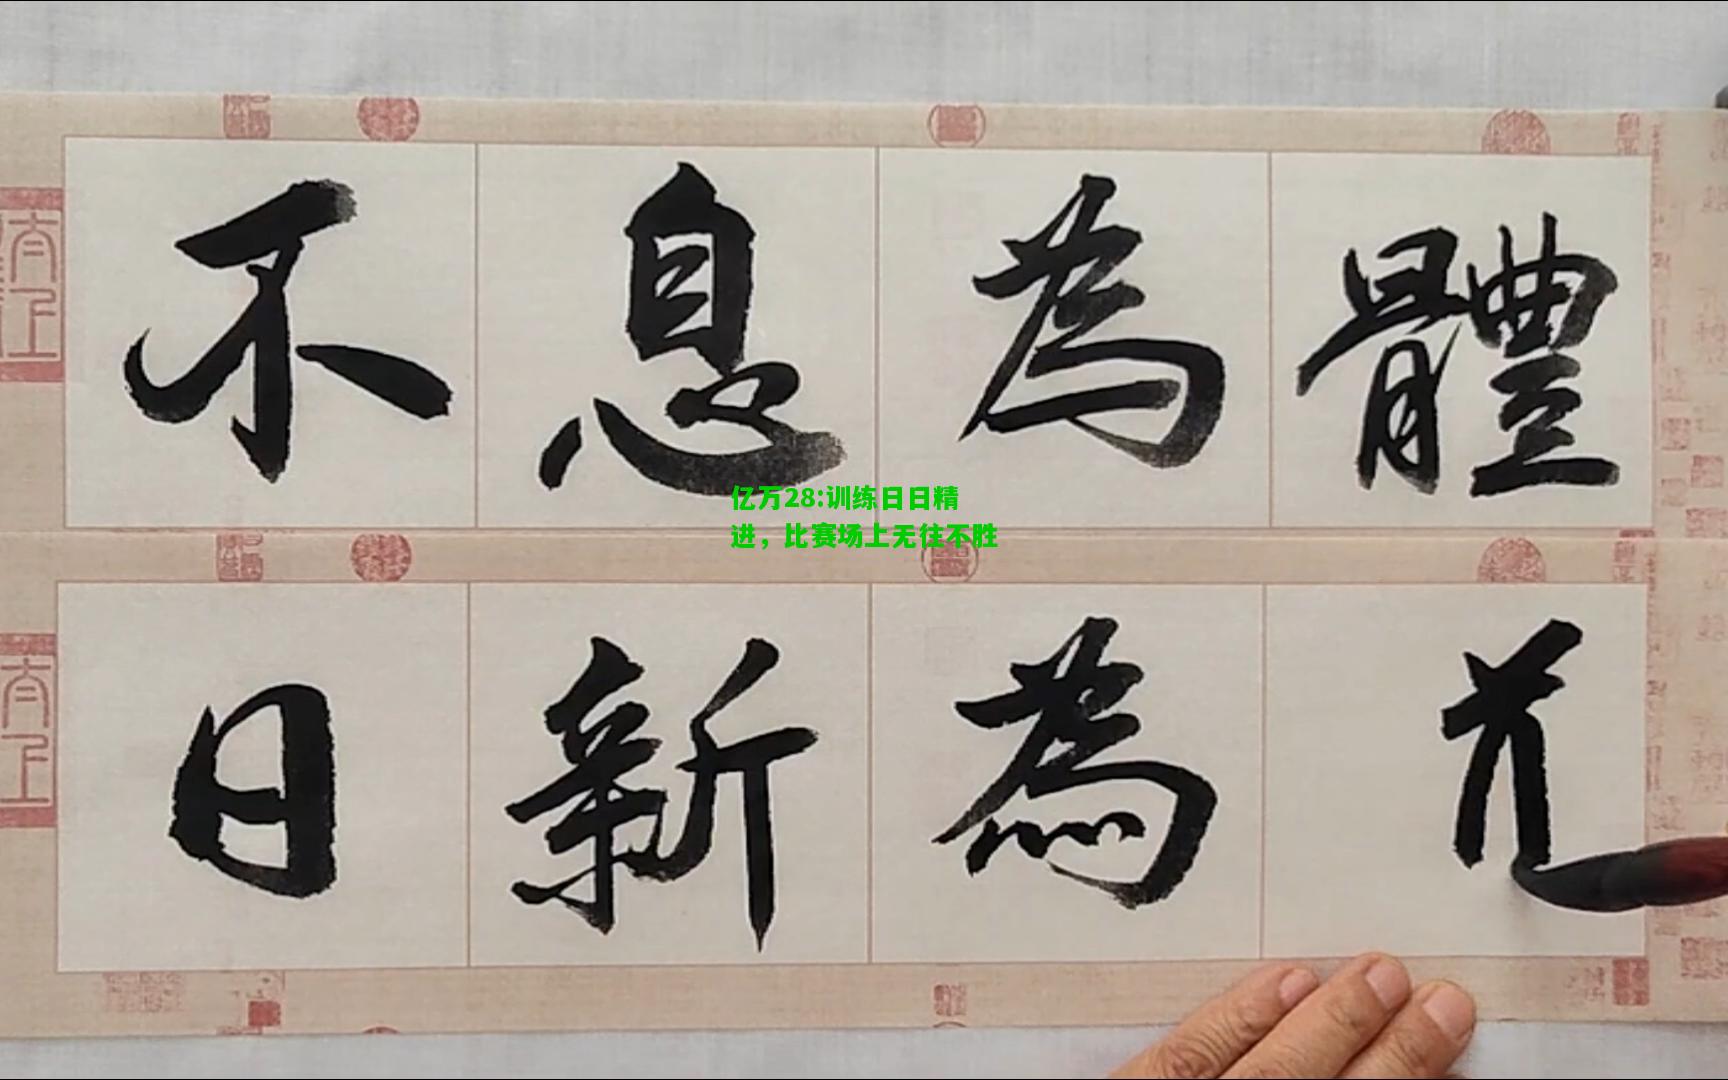 不息為體
亿万28:训练日日精
进，比赛场上无往不胜
日新為